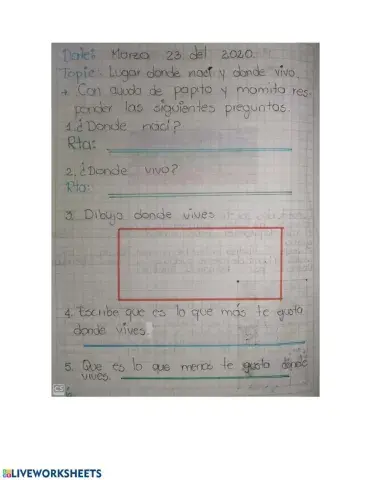 Date: Marzo 23 del 2020.
Topic: Lugar donde nací y donde vivo.
* Con ayuda de papito y mamita res-
ponder las siguientes preguntas.
1. ¿Donde nací?
Rta:
2. ¿Donde vivo?
Rta:
3. Dibuja donde vives
4. Escribe que es lo que más te gusta
donde vives.
5. Que es lo que menos te gusta donde
vives.
CS
LIVEWORKSHEETS